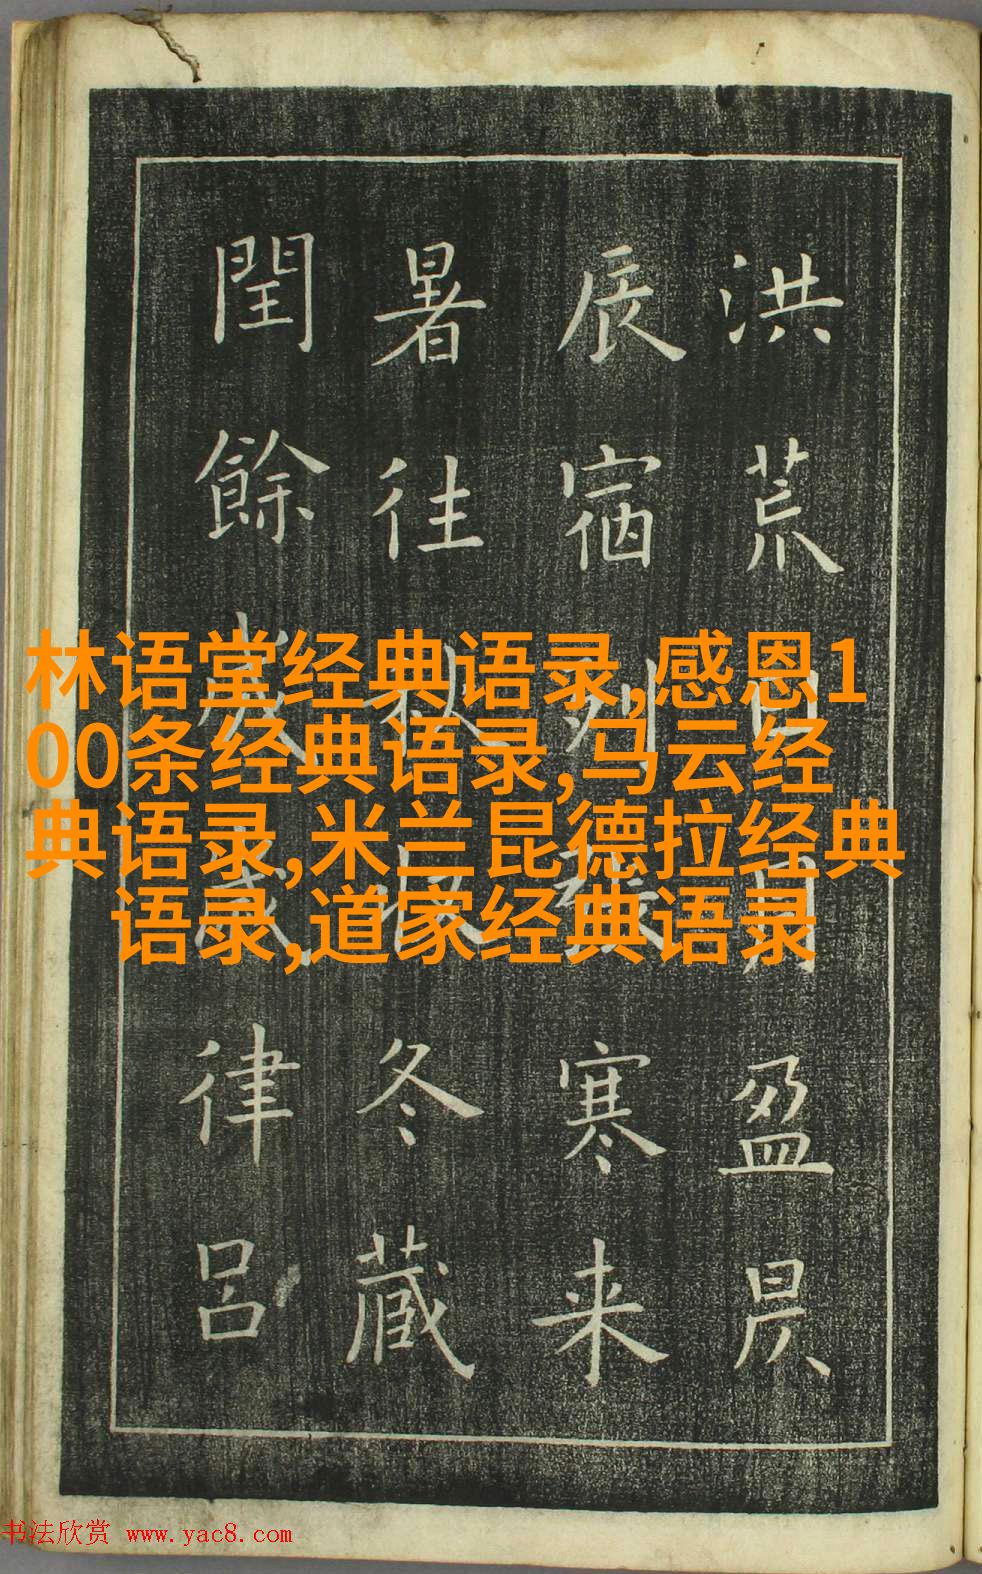 洪荒日月盈昃
辰宿列寒来
暑往秋收冬藏
閏餘律呂
林语堂经典语录,感恩1
00条经典语录,马云经
典语录,米兰昆德拉经典
语录,道家经典语录
书法欣赏 www.yac8.com